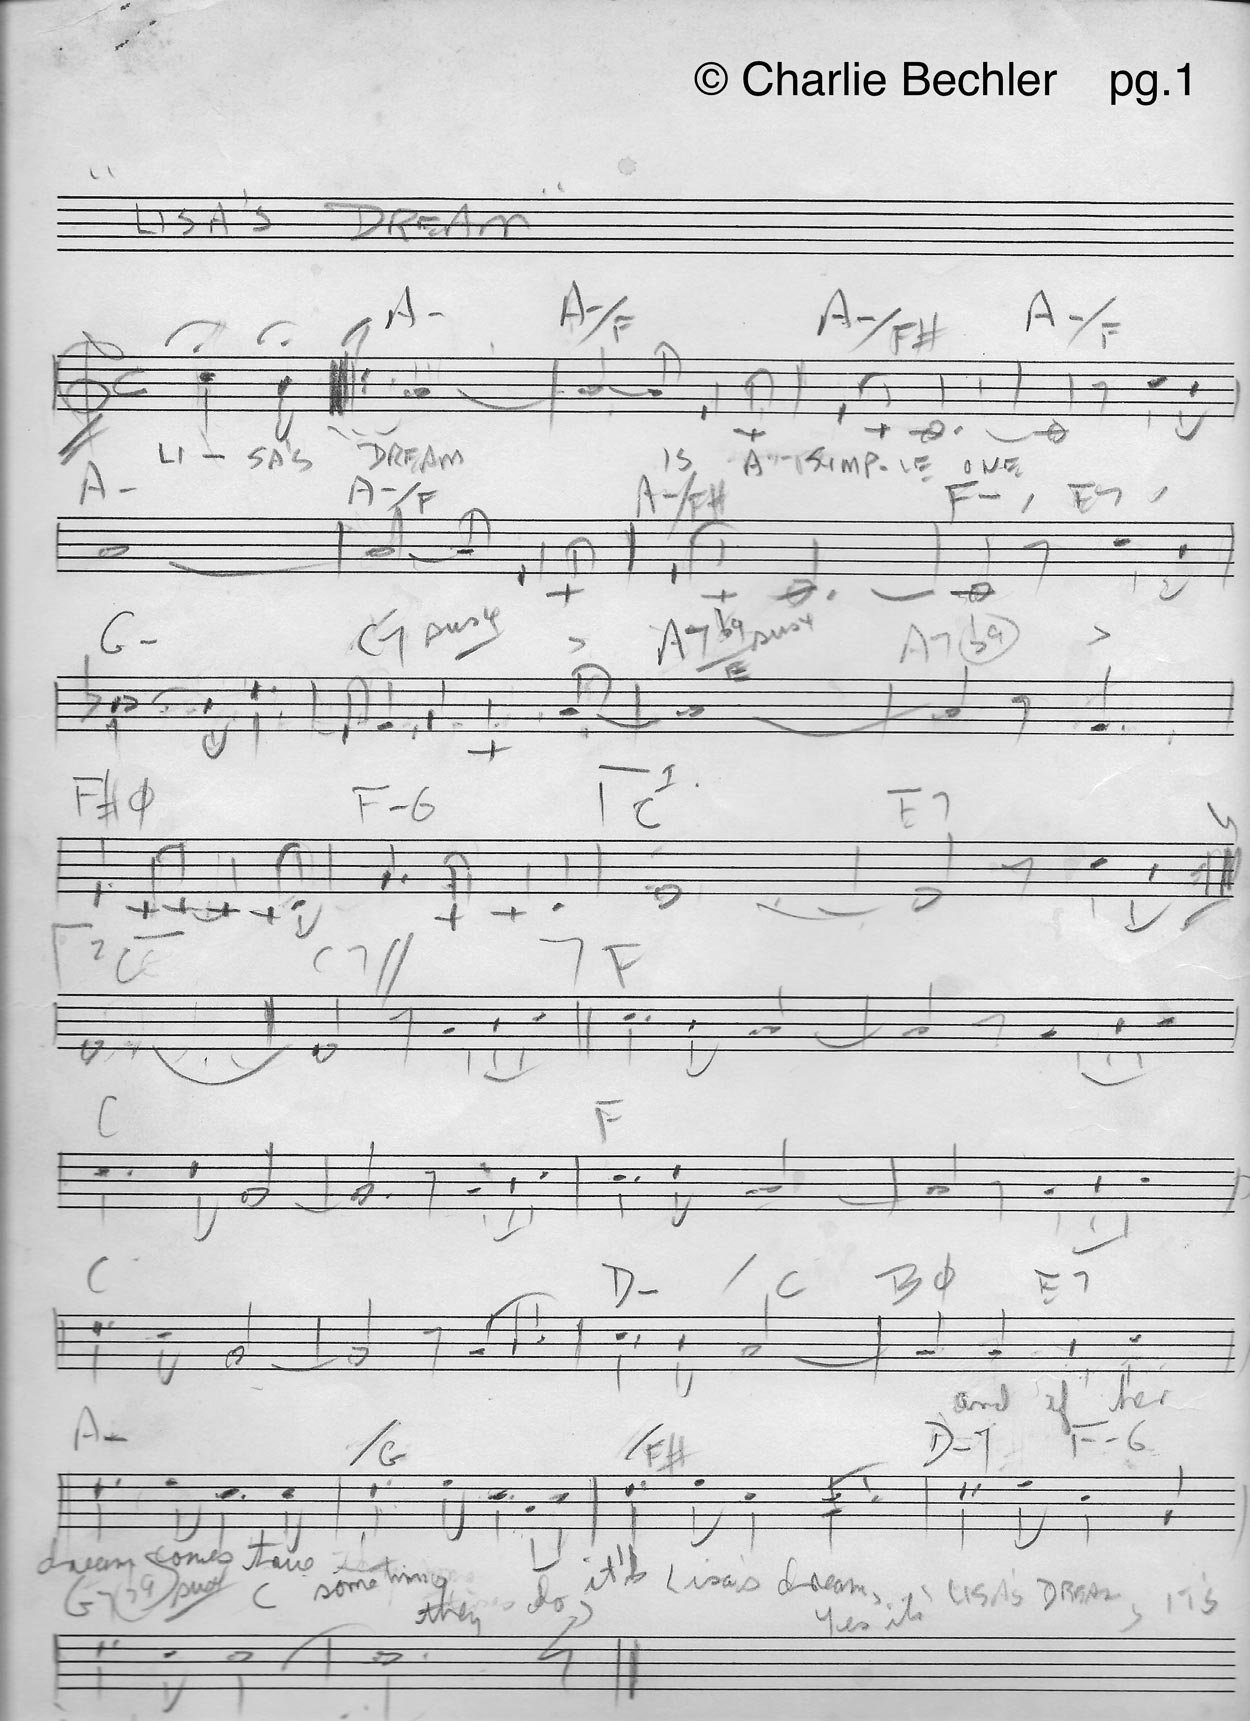 © Charlie Bechler pg.1
"LISA'S DREAM"
A- A-/F A-/F# A-/F
LI - SA'S DREAM IS A SIMP-LE ONE
A- A-/F A-/F# F- E7
G- C7 sus4 > A7b9sus4/E A7(b9) >
F#ø F-6 1. C E7
2. C C7// F
C F
C D- /C Bø E7
and if her
A- /G /F# D-7 F-6
dream comes true something they do, it's Lisa's dream, yes it's LISA'S DREAM, IT'S
G7(b9)sus4 C